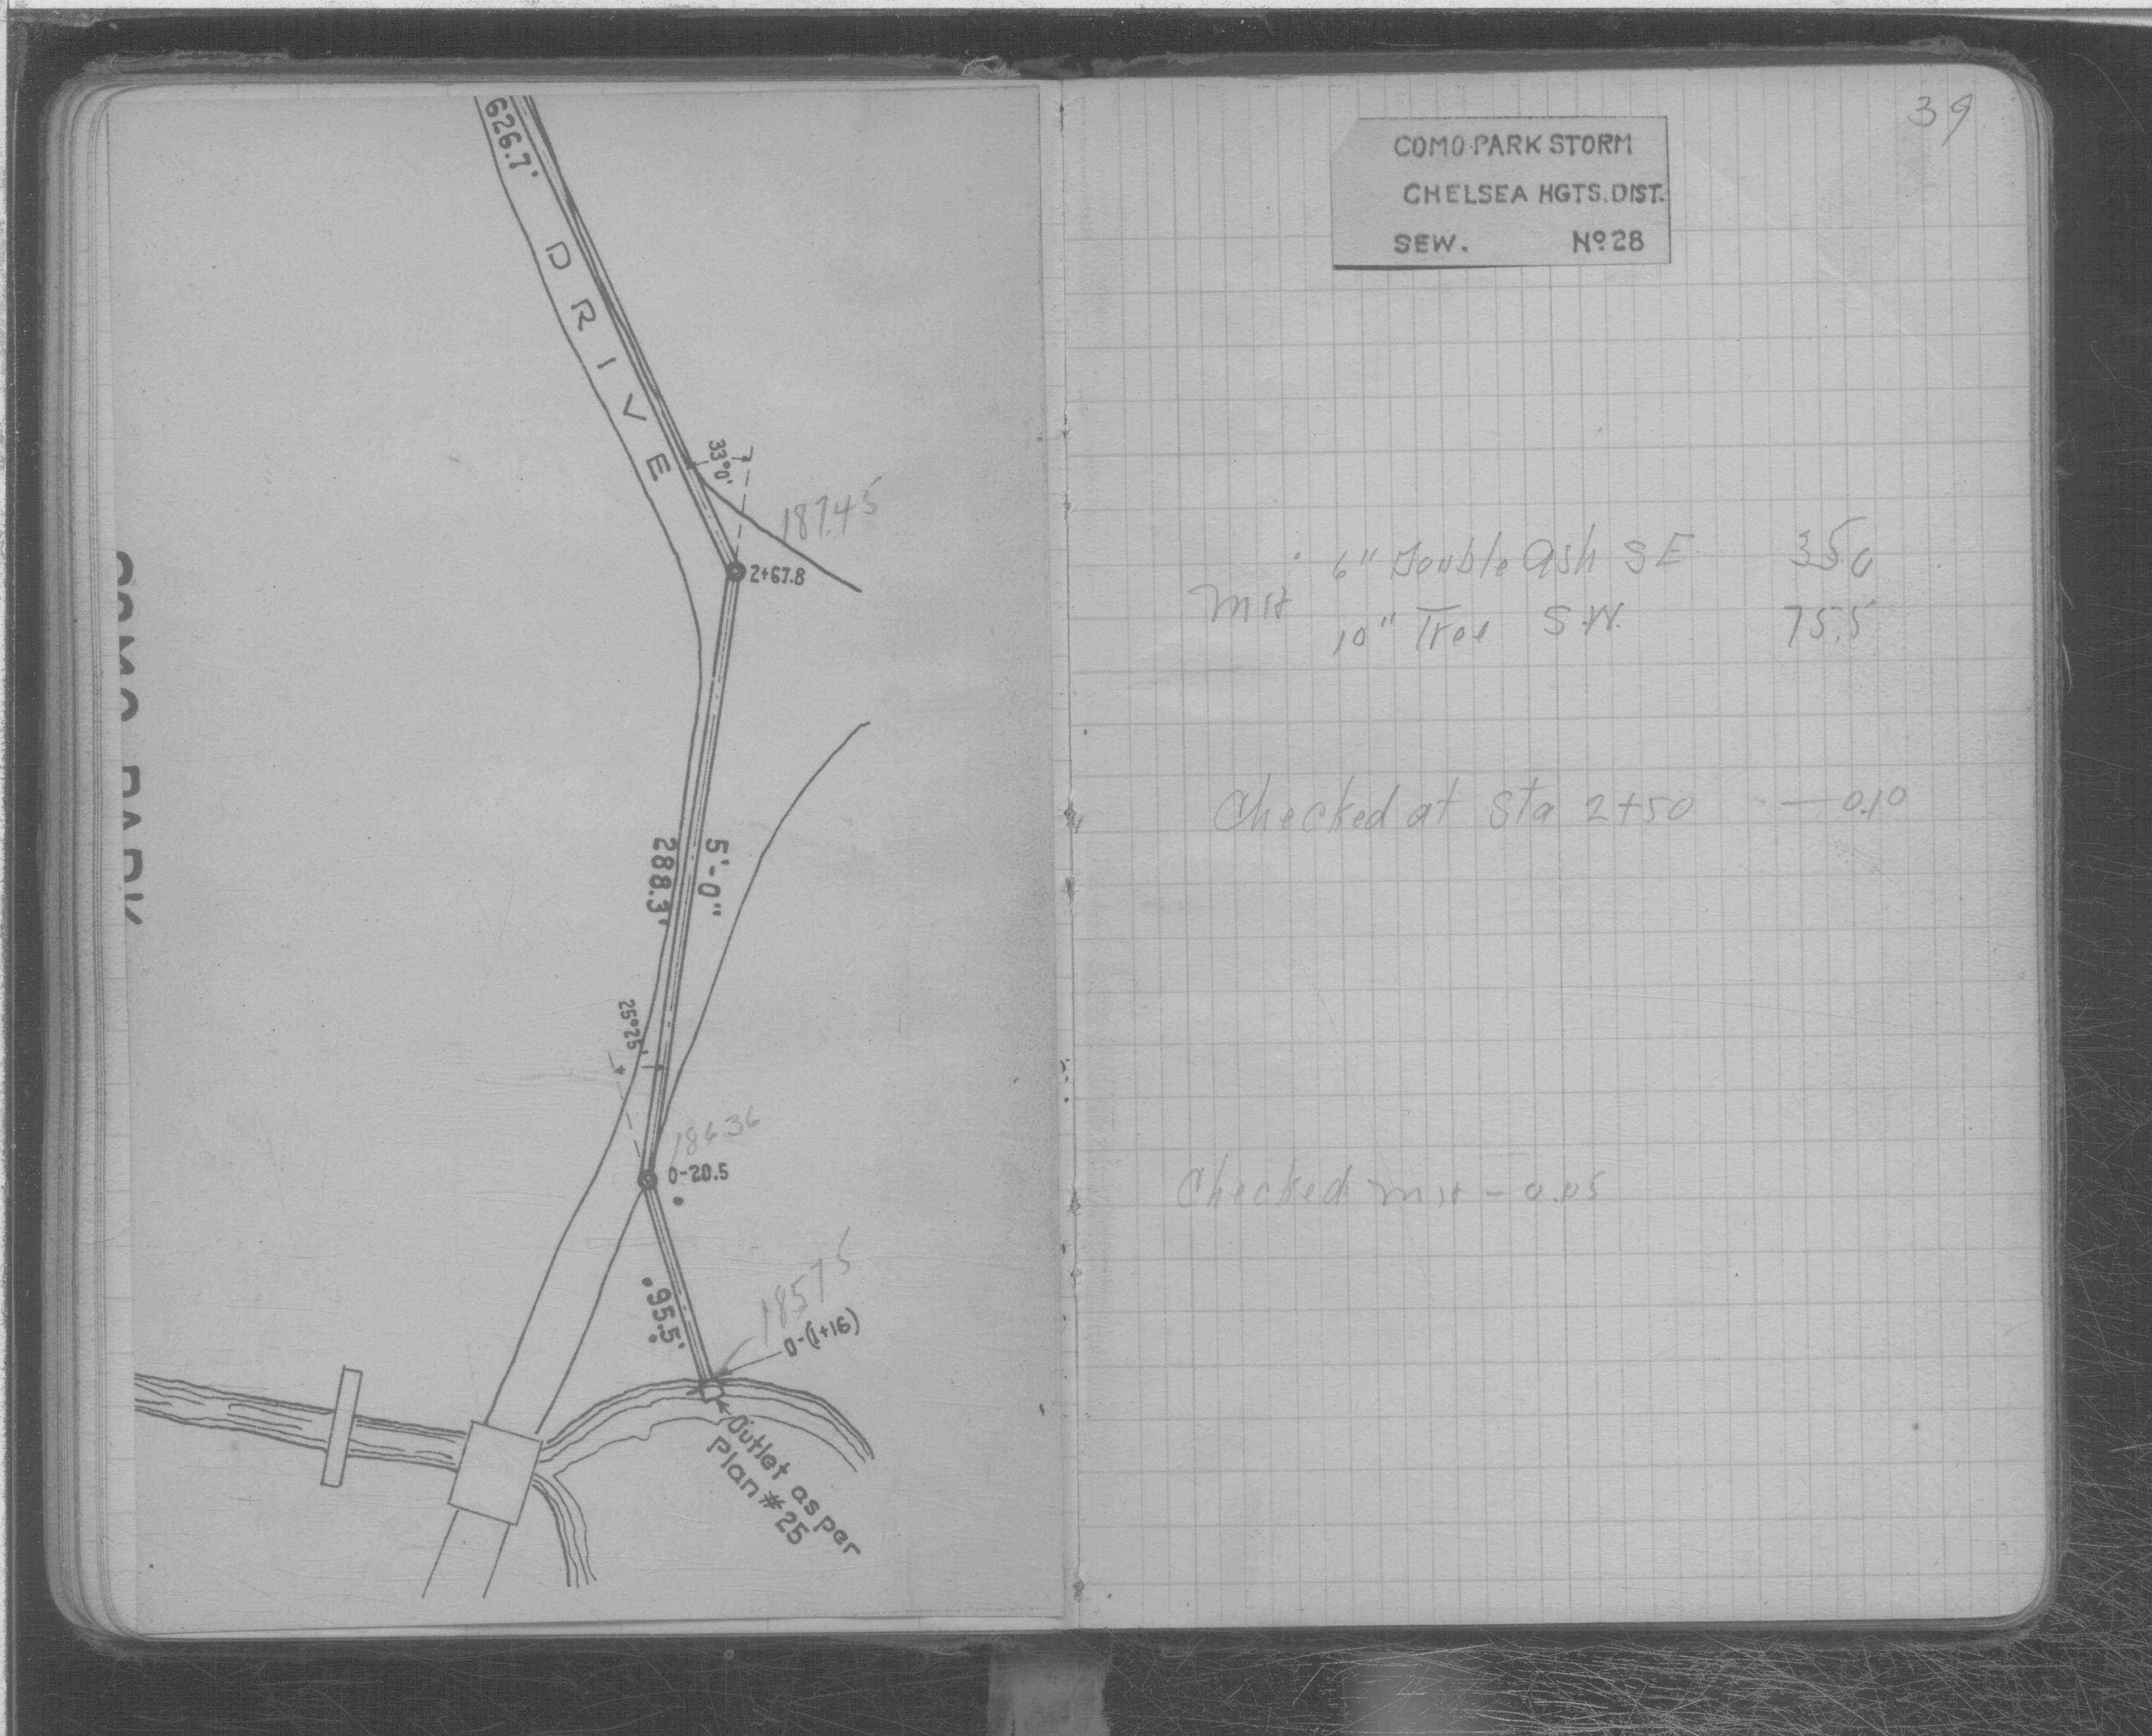 626.7'
DRIVE
33°0'
187.45
2+67.8
5'-0"
288.3'
25°25'
186.36
0-20.5
95.5'
185.75
0-(1+16)
Outlet as per
Plan #25
COMO PARK
39
COMO PARK STORM
CHELSEA HGTS. DIST.
SEW. Nº 28
6" Double Ash SE 35.0
MH
10" Tree S.W. 75.5
Checked at Sta 2+50 — 0.10
Checked MH - 0.05